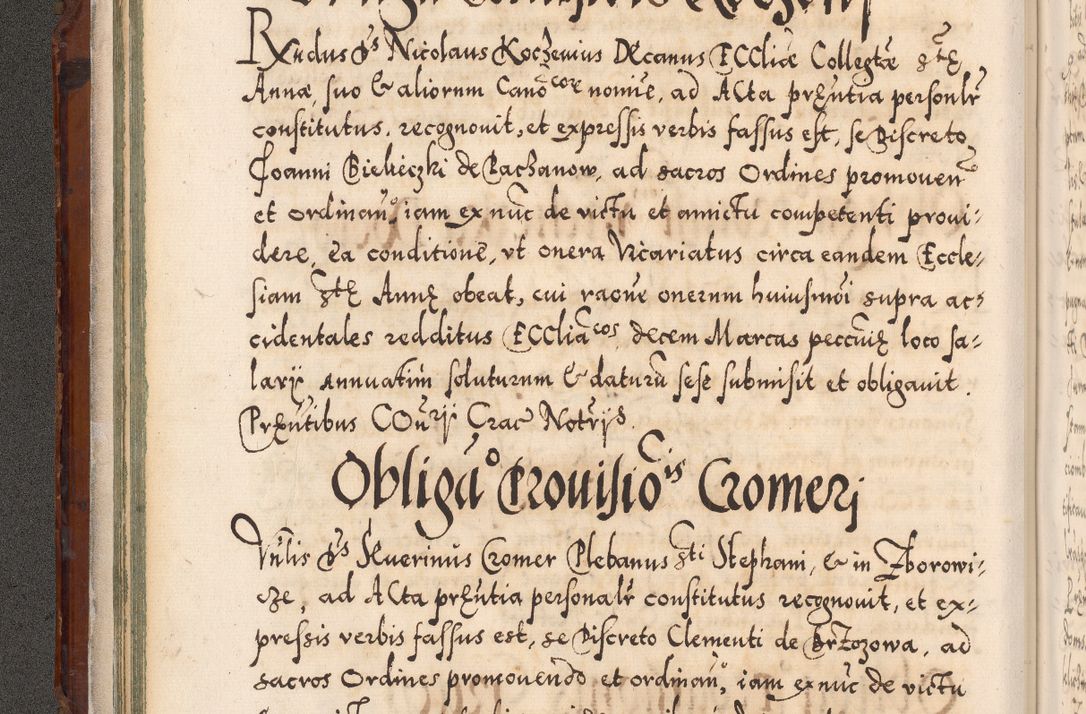 Rxndus Ds Nicolaus Koczenius Decanus ECCliæ Collegtæ Stæ
Annæ, suo & aliorum Canocorz nomie, ad ACta prxntia personlr
constitutus, recognouit, et expressis verbis fassus est, se Discreto
Joanni Bielieczki de Baczanow, ad sacros Ordines promouendo
et ordinando, iam ex nūc de victu et amictu competenti proui-
dere, ea conditione, vt onera Vicariatus circa eandem Eccle-
siam Stę Annę obeat, cui raone onerum huiusmoi supra ac-
cidentales redditus ECCliacos, decem Marcas peccuię loco sa-
larij annuatim soluturum & daturū sese submisit et obligauit.
Prxntibus COnrij Crac Notrijs.
Obligāo Prouisiois Cromerj
Vnlis Ds Seuerinus Cromer Plebanus Sti Stephani, & in Zborowi-
cze, ad ACta prxntia personalr constitutus recognouit, et ex-
pressis verbis fassus est, se Discreto Clementi de Brzozowa, ad
sacros Ordines promouendo et ordinando, iam ex nūc de victu